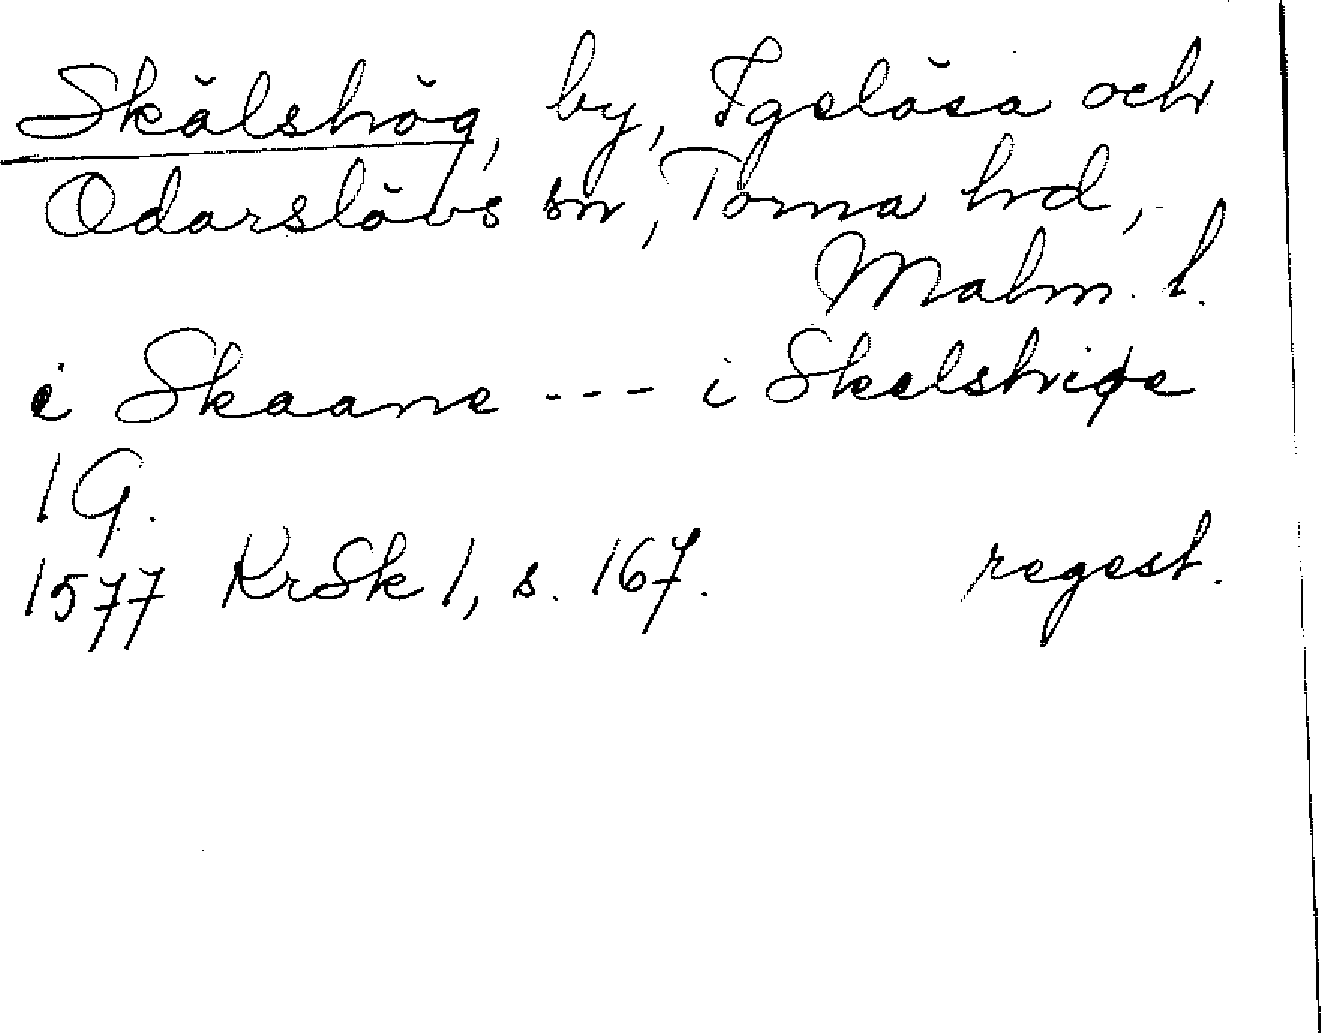 Skälshög, by, Igelösa och
Odarslövs sn, Torna hd,
Malm. l.
i Skaane --- i Skelshiøe
1 G.
1577 KrSk 1, s. 167. regest.